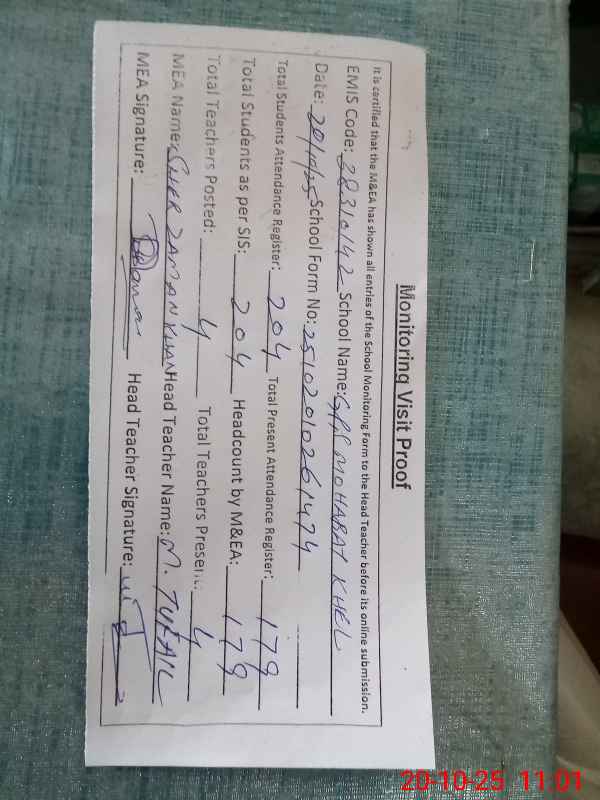 Monitoring Visit Proof
It is certified that the M&EA has shown all entries of the School Monitoring Form to the Head Teacher before its online submission.
EMIS Code: 28310142 School Name: GPS MOHABAT KHEL
Date: 20/10/25 School Form No: 25102010261474
Total Students Attendance Register: 204 Total Present Attendance Register: 179
Total Students as per SIS: 204 Headcount by M&EA: 179
Total Teachers Posted: 4 Total Teachers Present: 4
MEA Name: SHER ZAMAN KHAN Head Teacher Name: M. TUFAIL
MEA Signature: Head Teacher Signature:
20-10-25 11:01